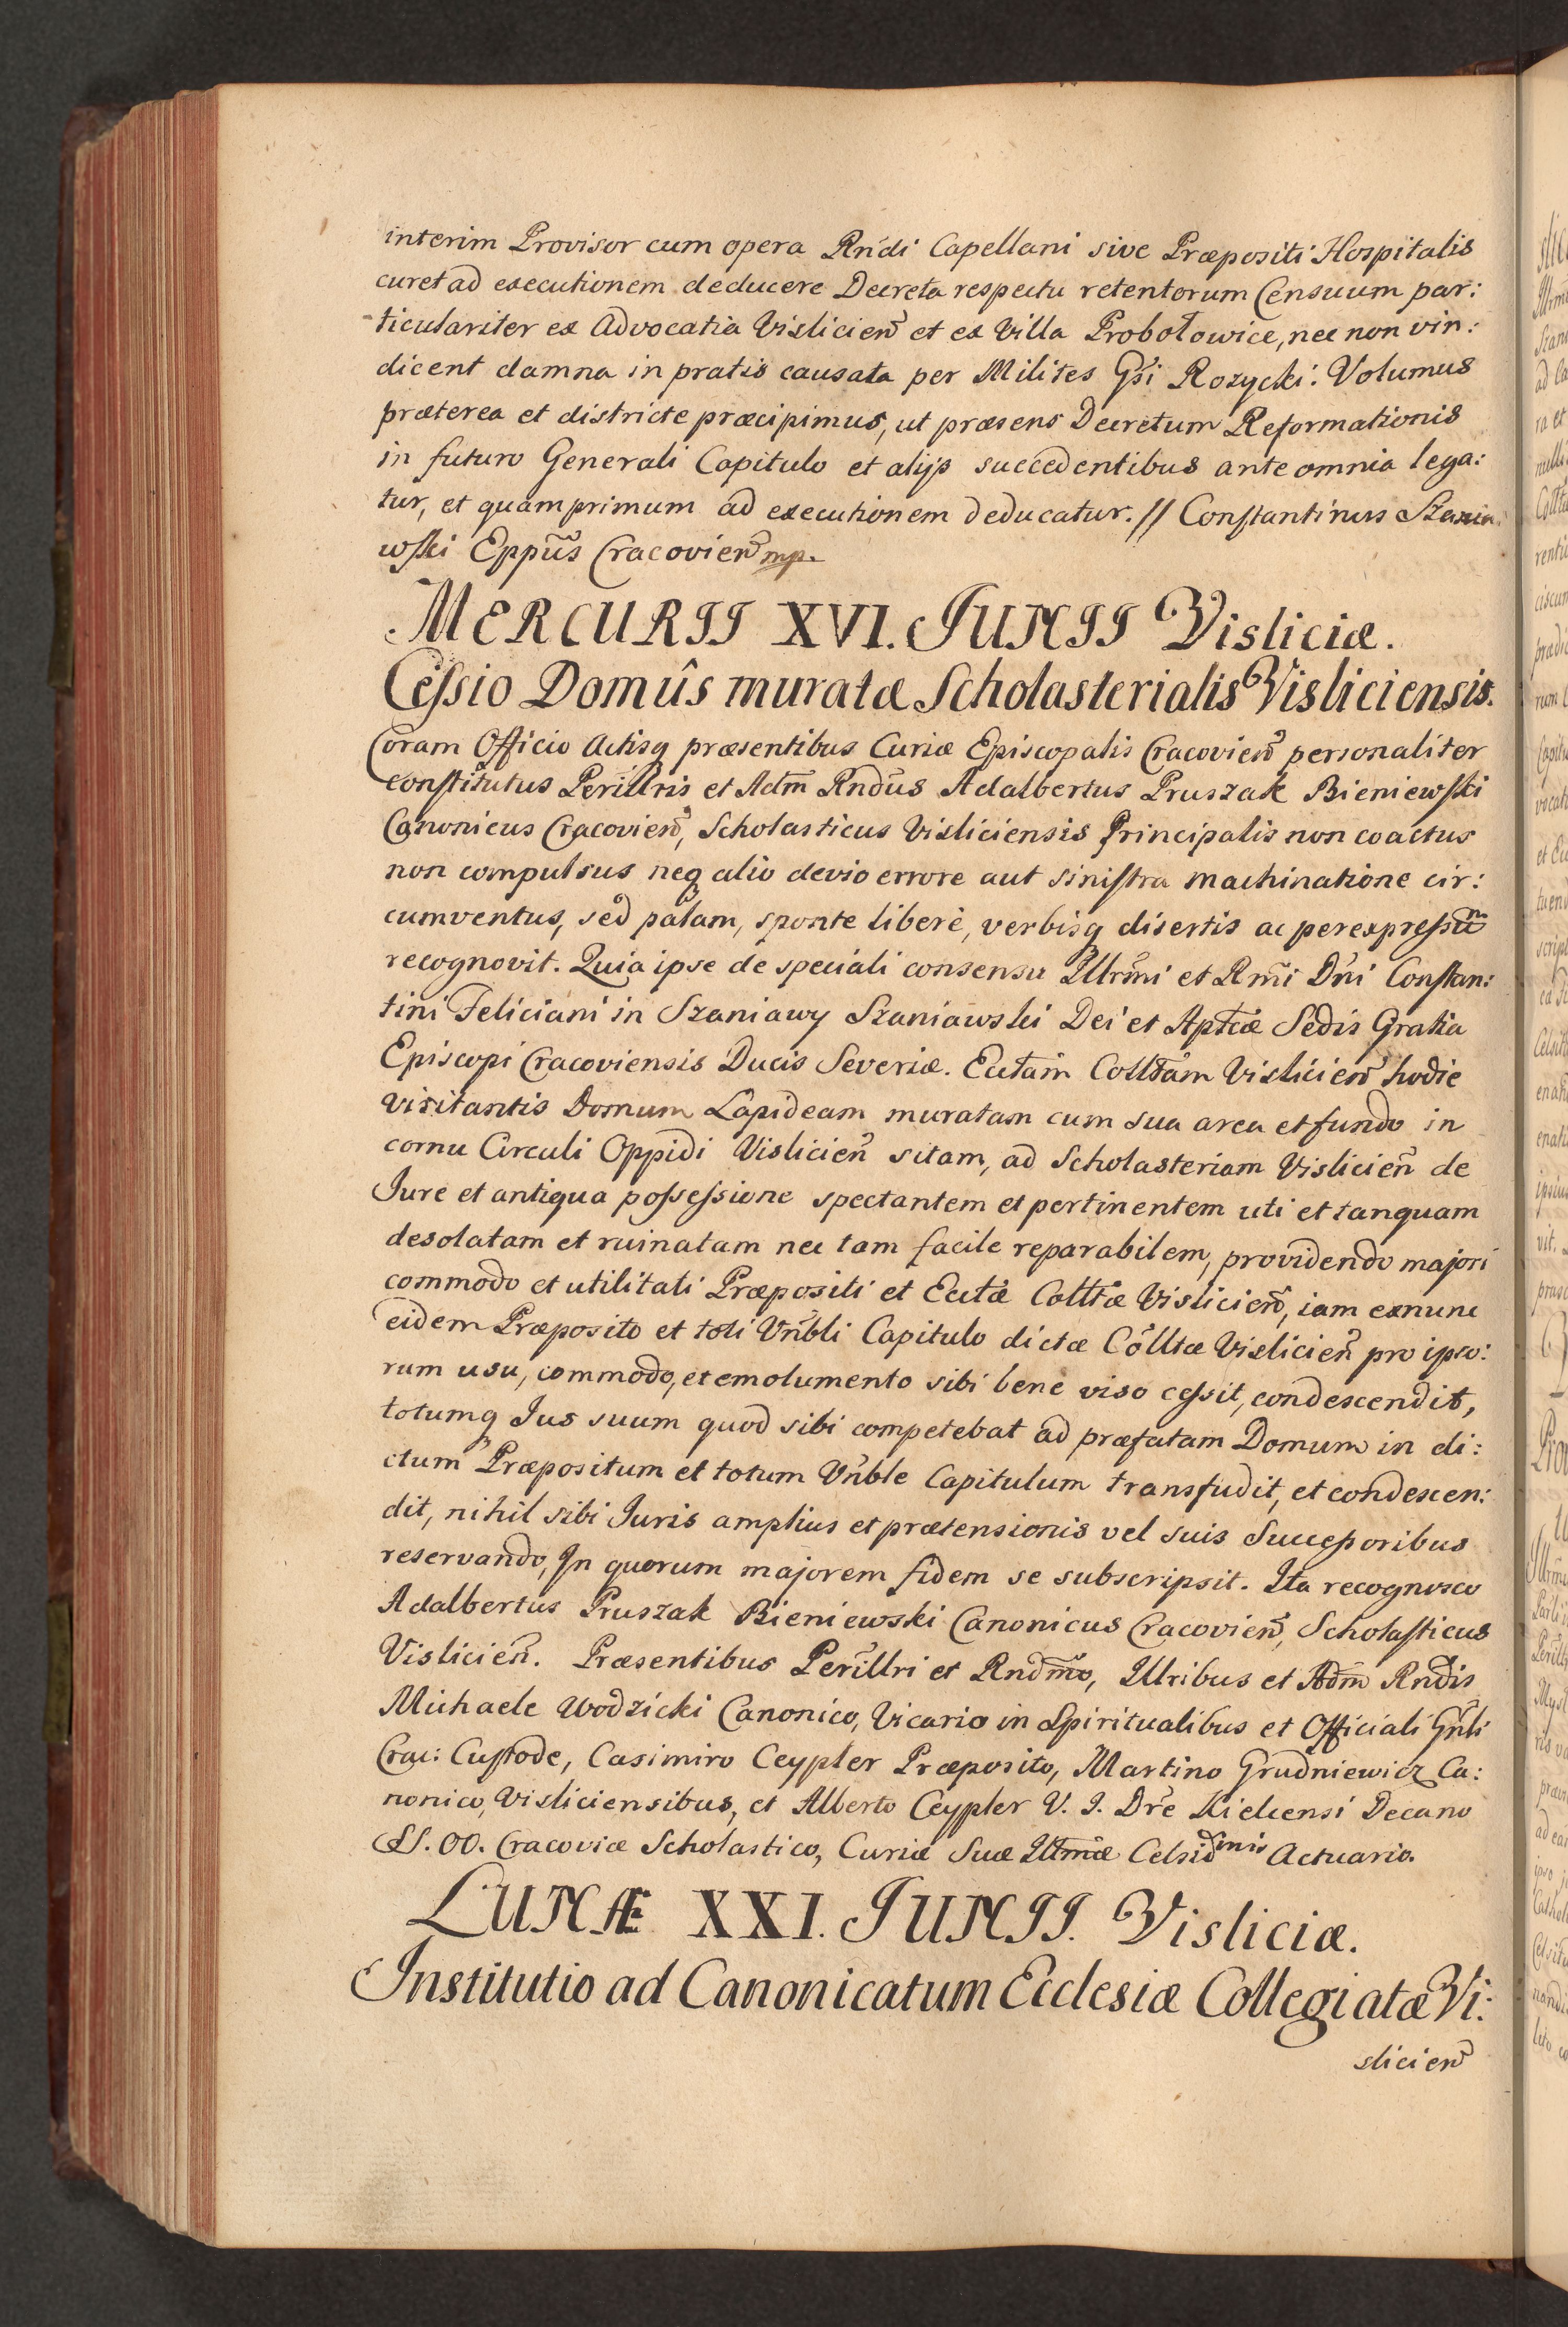 interim Provisor cum opera Rńdi Capellani sive Præpositi Hospitalis
curet ad executionem deducere Decreta respectu retentorum Censuum par:
ticulariter ex Advocatia Vislicień et ex Villa Probołowice, nec non vin:
dicent damna in pratis causata per Milites Gsi Rozycki. Volumus
præterea et districte præcipimus, ut præsens Decretum Reformationis
in futuro Generali Capitulo et alijs succedentibus ante omnia lega:
tur, et quamprimum ad executionem deducatur. // Constantinus Szania
wski Eppũs Cracovień mp.
MERCURII XVI. JUNII Visliciæ.
Cessio Domûs muratæ Scholasterialis Visliciensis.
Coram Officio Actisq præsentibus Curiæ Episcopalis Cracovień personaliter
constitutus Perillris et Adm̃ Rndũs Adalbertus Pruszak Bieniewski
Canonicus Cracovień, Scholasticus Visliciensis Principalis non coactus
non compulsus neq alio devio errore aut sinistra machinatione cir:
cumventus, sed palam, sponte liberè, verbisq disertis ac per expressũ
recognovit. Quia ipse de speciali consensu Illrm̃i et Rm̃i Dńi Constan:
tini Feliciani in Szaniawy Szaniawski Dei et Aptcæ Sedis Gratia
Episcopi Cracoviensis Ducis Severiæ. Ecctam Colltam Vislicień hodie
visitantis Domum Lapideam muratam cum sua area et fundo in
cornu Circuli Oppidi Vislicień sitam, ad Scholasteriam Vislicień de
Jure et antiqua possessione spectantem et pertinentem uti et tanquam
desolatam et ruinatam nec tam facile reparabilem, providendo majori
commodo et utilitati Præpositi et Ecctæ Colltæ Vislicień, iam exnunc
eidem Præposito et toti Vńbli Capitulo dictæ Colltæ Vislicień pro ipso:
rum usu, commodo, et emolumento sibi bene viso cessit, condescendit,
totumq Jus suum quod sibi competebat ad præfatam Domum in di:
ctum Præpositum et totum Vńble Capitulum transfudit, et condescen:
dit, nihil sibi Juris amplius et prætensionis vel suis Successoribus
reservando, In quorum majorem fidem se subscripsit. Ita recognosco
Adalbertus Pruszak Bieniewski Canonicus Cracovień, Scholasticus
Vislicień. Præsentibus Perillri et Rndm̃o, Illribus et Adm̃ Rndis
Michaele Wodzicki Canonico, Vicario in Spiritualibus et Officiali Gńli
Crac: Custode, Casimiro Ceypler Præposito, Martino Grudniewicz Ca:
nonico, Visliciensibus, et Alberto Ceypler V. J. Dre Kielcensi Decano
SS. OO. Cracoviæ Scholastico, Curiæ Suæ Illm̃æ Celsidinis Actuario.
LUNÆ XXI. JUNII. Visliciæ.
Institutio ad Canonicatum Ecclesiæ Collegiatæ Vi:
slicień